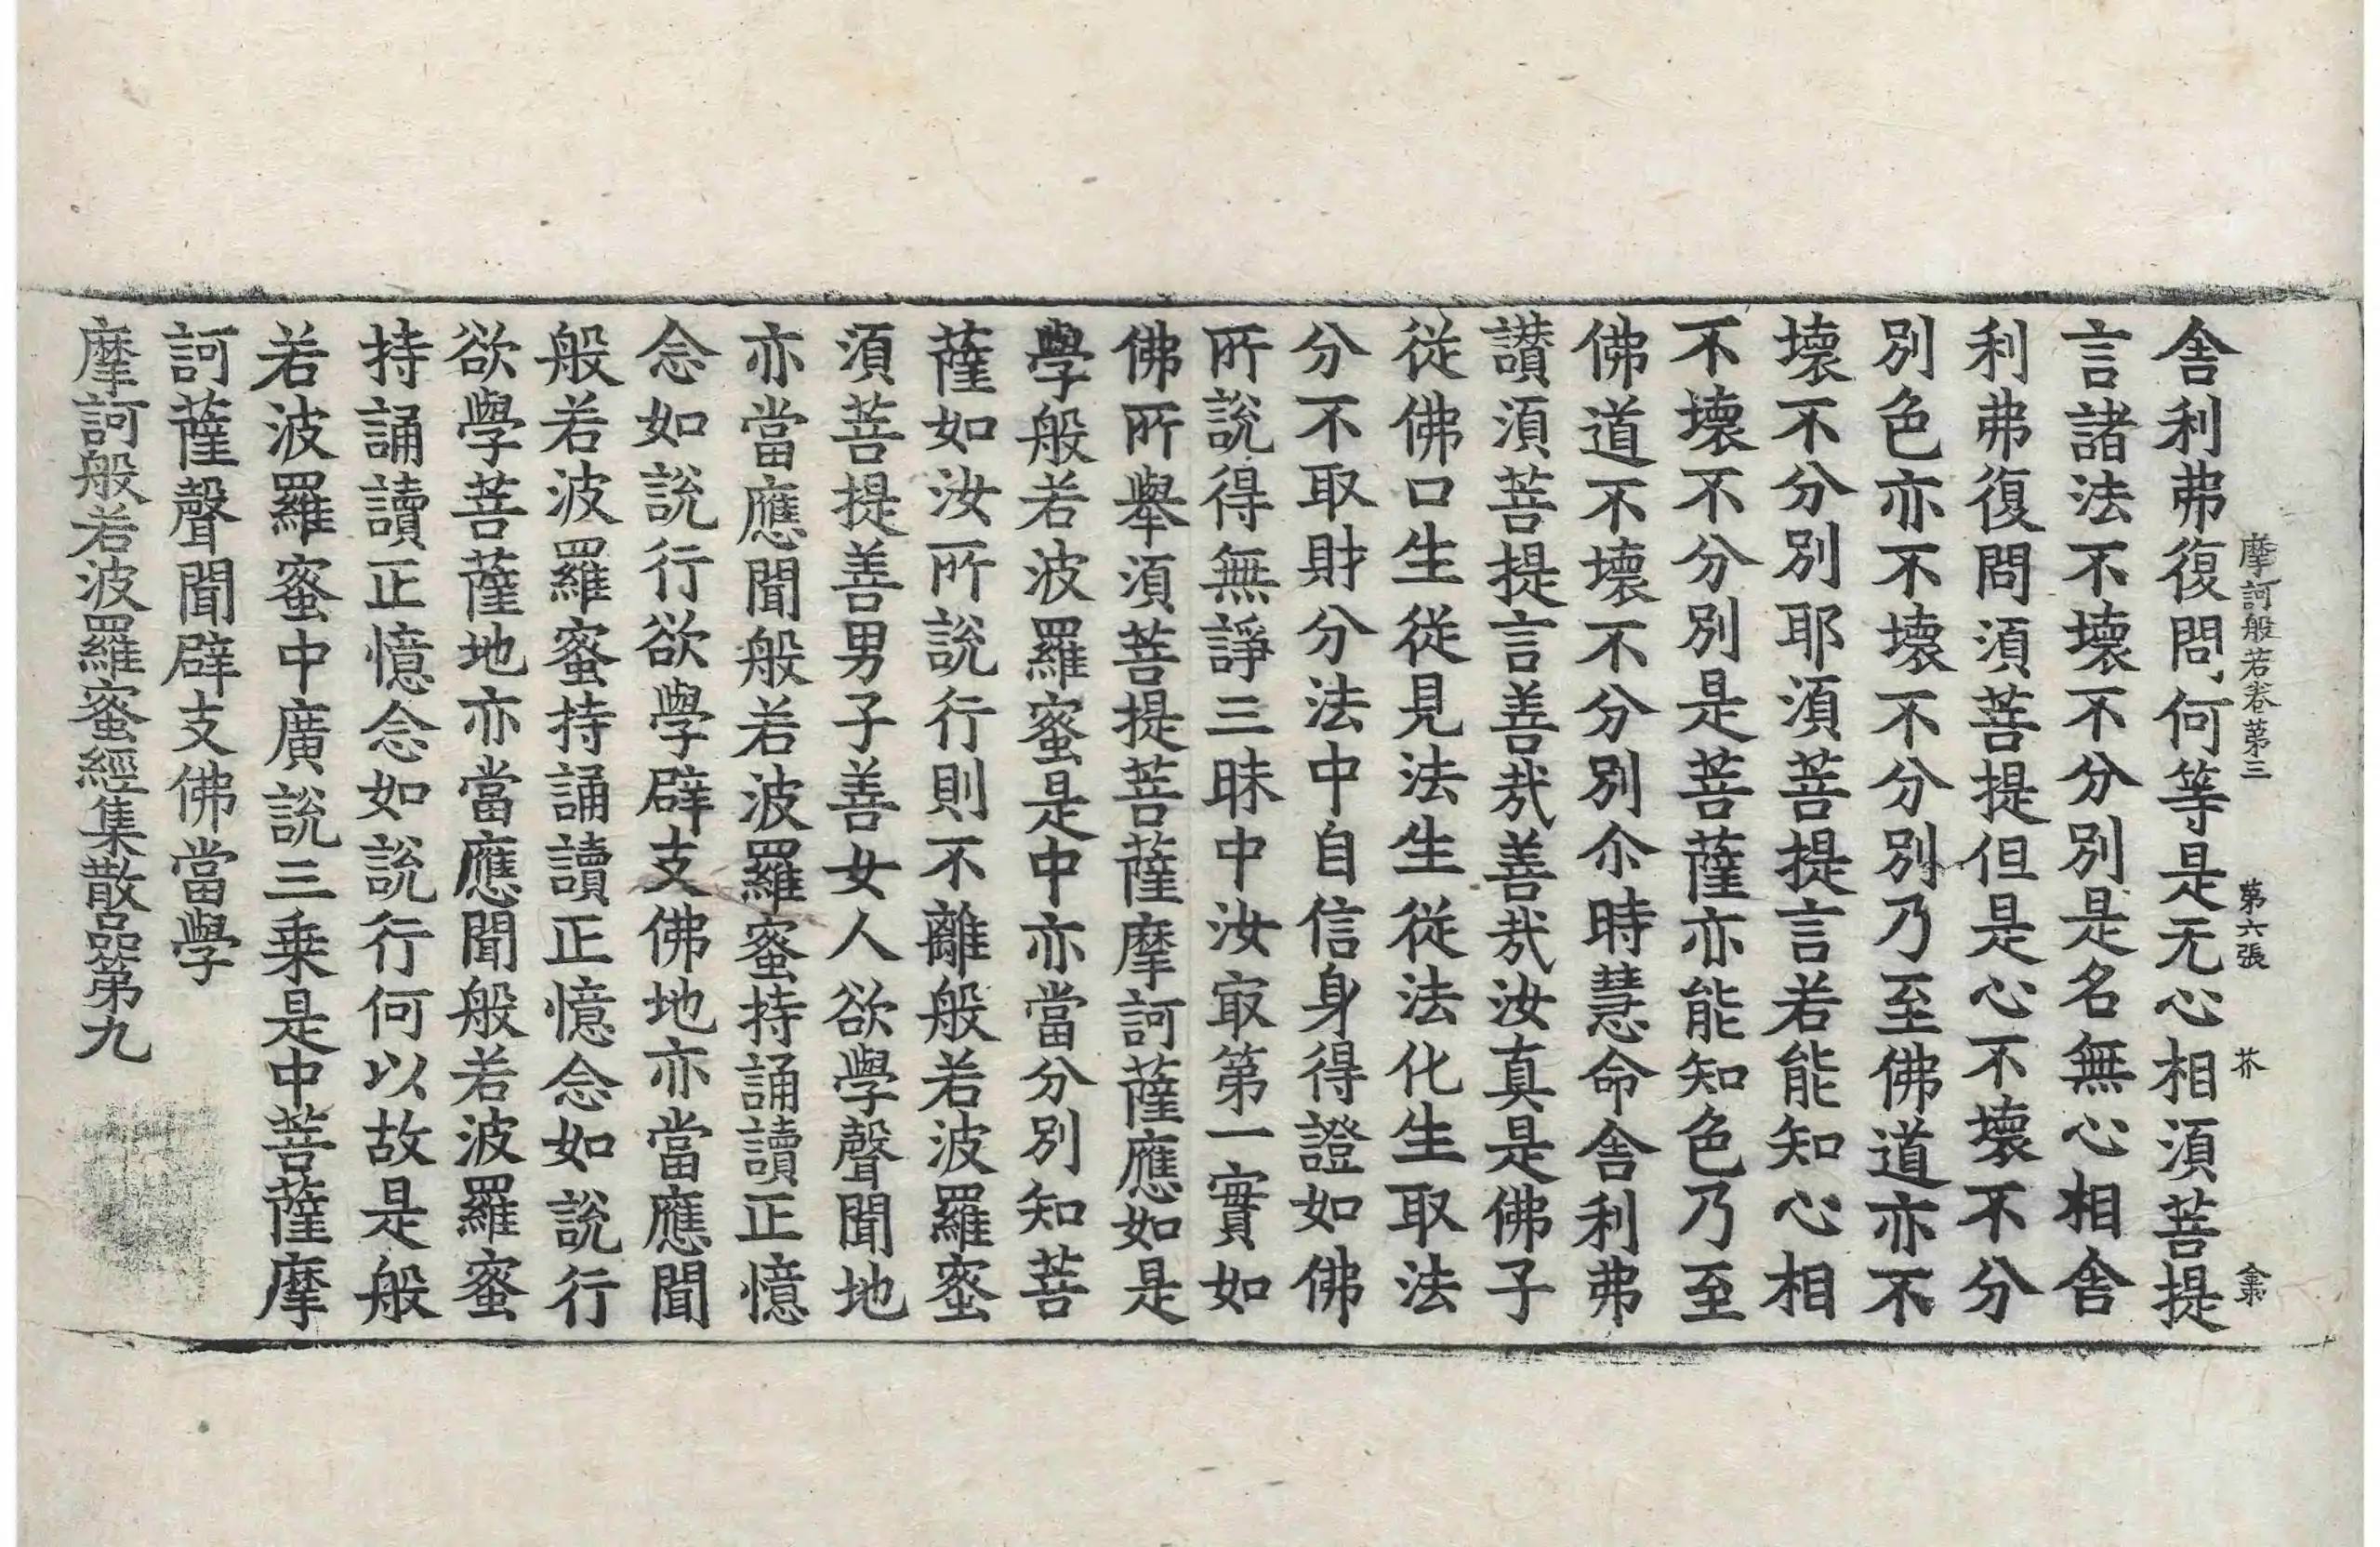 摩訶般若卷第三 第六張 芥 金萊
舍利弗復問何等是无心相須菩提
言諸法不壞不分別是名無心相舍
利弗復問須菩提但是心不壞不分
別色亦不壞不分別乃至佛道亦不
壞不分別耶須菩提言若能知心相
不壞不分別是菩薩亦能知色乃至
佛道不壞不分別尒時慧命舍利弗
讃須菩提言善哉善哉汝真是佛子
從佛口生從見法生從法化生取法
分不取財分法中自信身得證如佛
所說得無諍三昧中汝㝡第一實如
佛所舉須菩提菩薩摩訶薩應如是
學般若波羅蜜是中亦當分別知菩
薩如汝所說行則不離般若波羅蜜
須菩提善男子善女人欲學聲聞地
亦當應聞般若波羅蜜持誦讀正憶
念如說行欲學辟支佛地亦當應聞
般若波羅蜜持誦讀正憶念如說行
欲學菩薩地亦當應聞般若波羅蜜
持誦讀正憶念如說行何以故是般
若波羅蜜中廣說三乗是中菩薩摩
訶薩聲聞辟支佛當學
摩訶般若波羅蜜經集散品第九